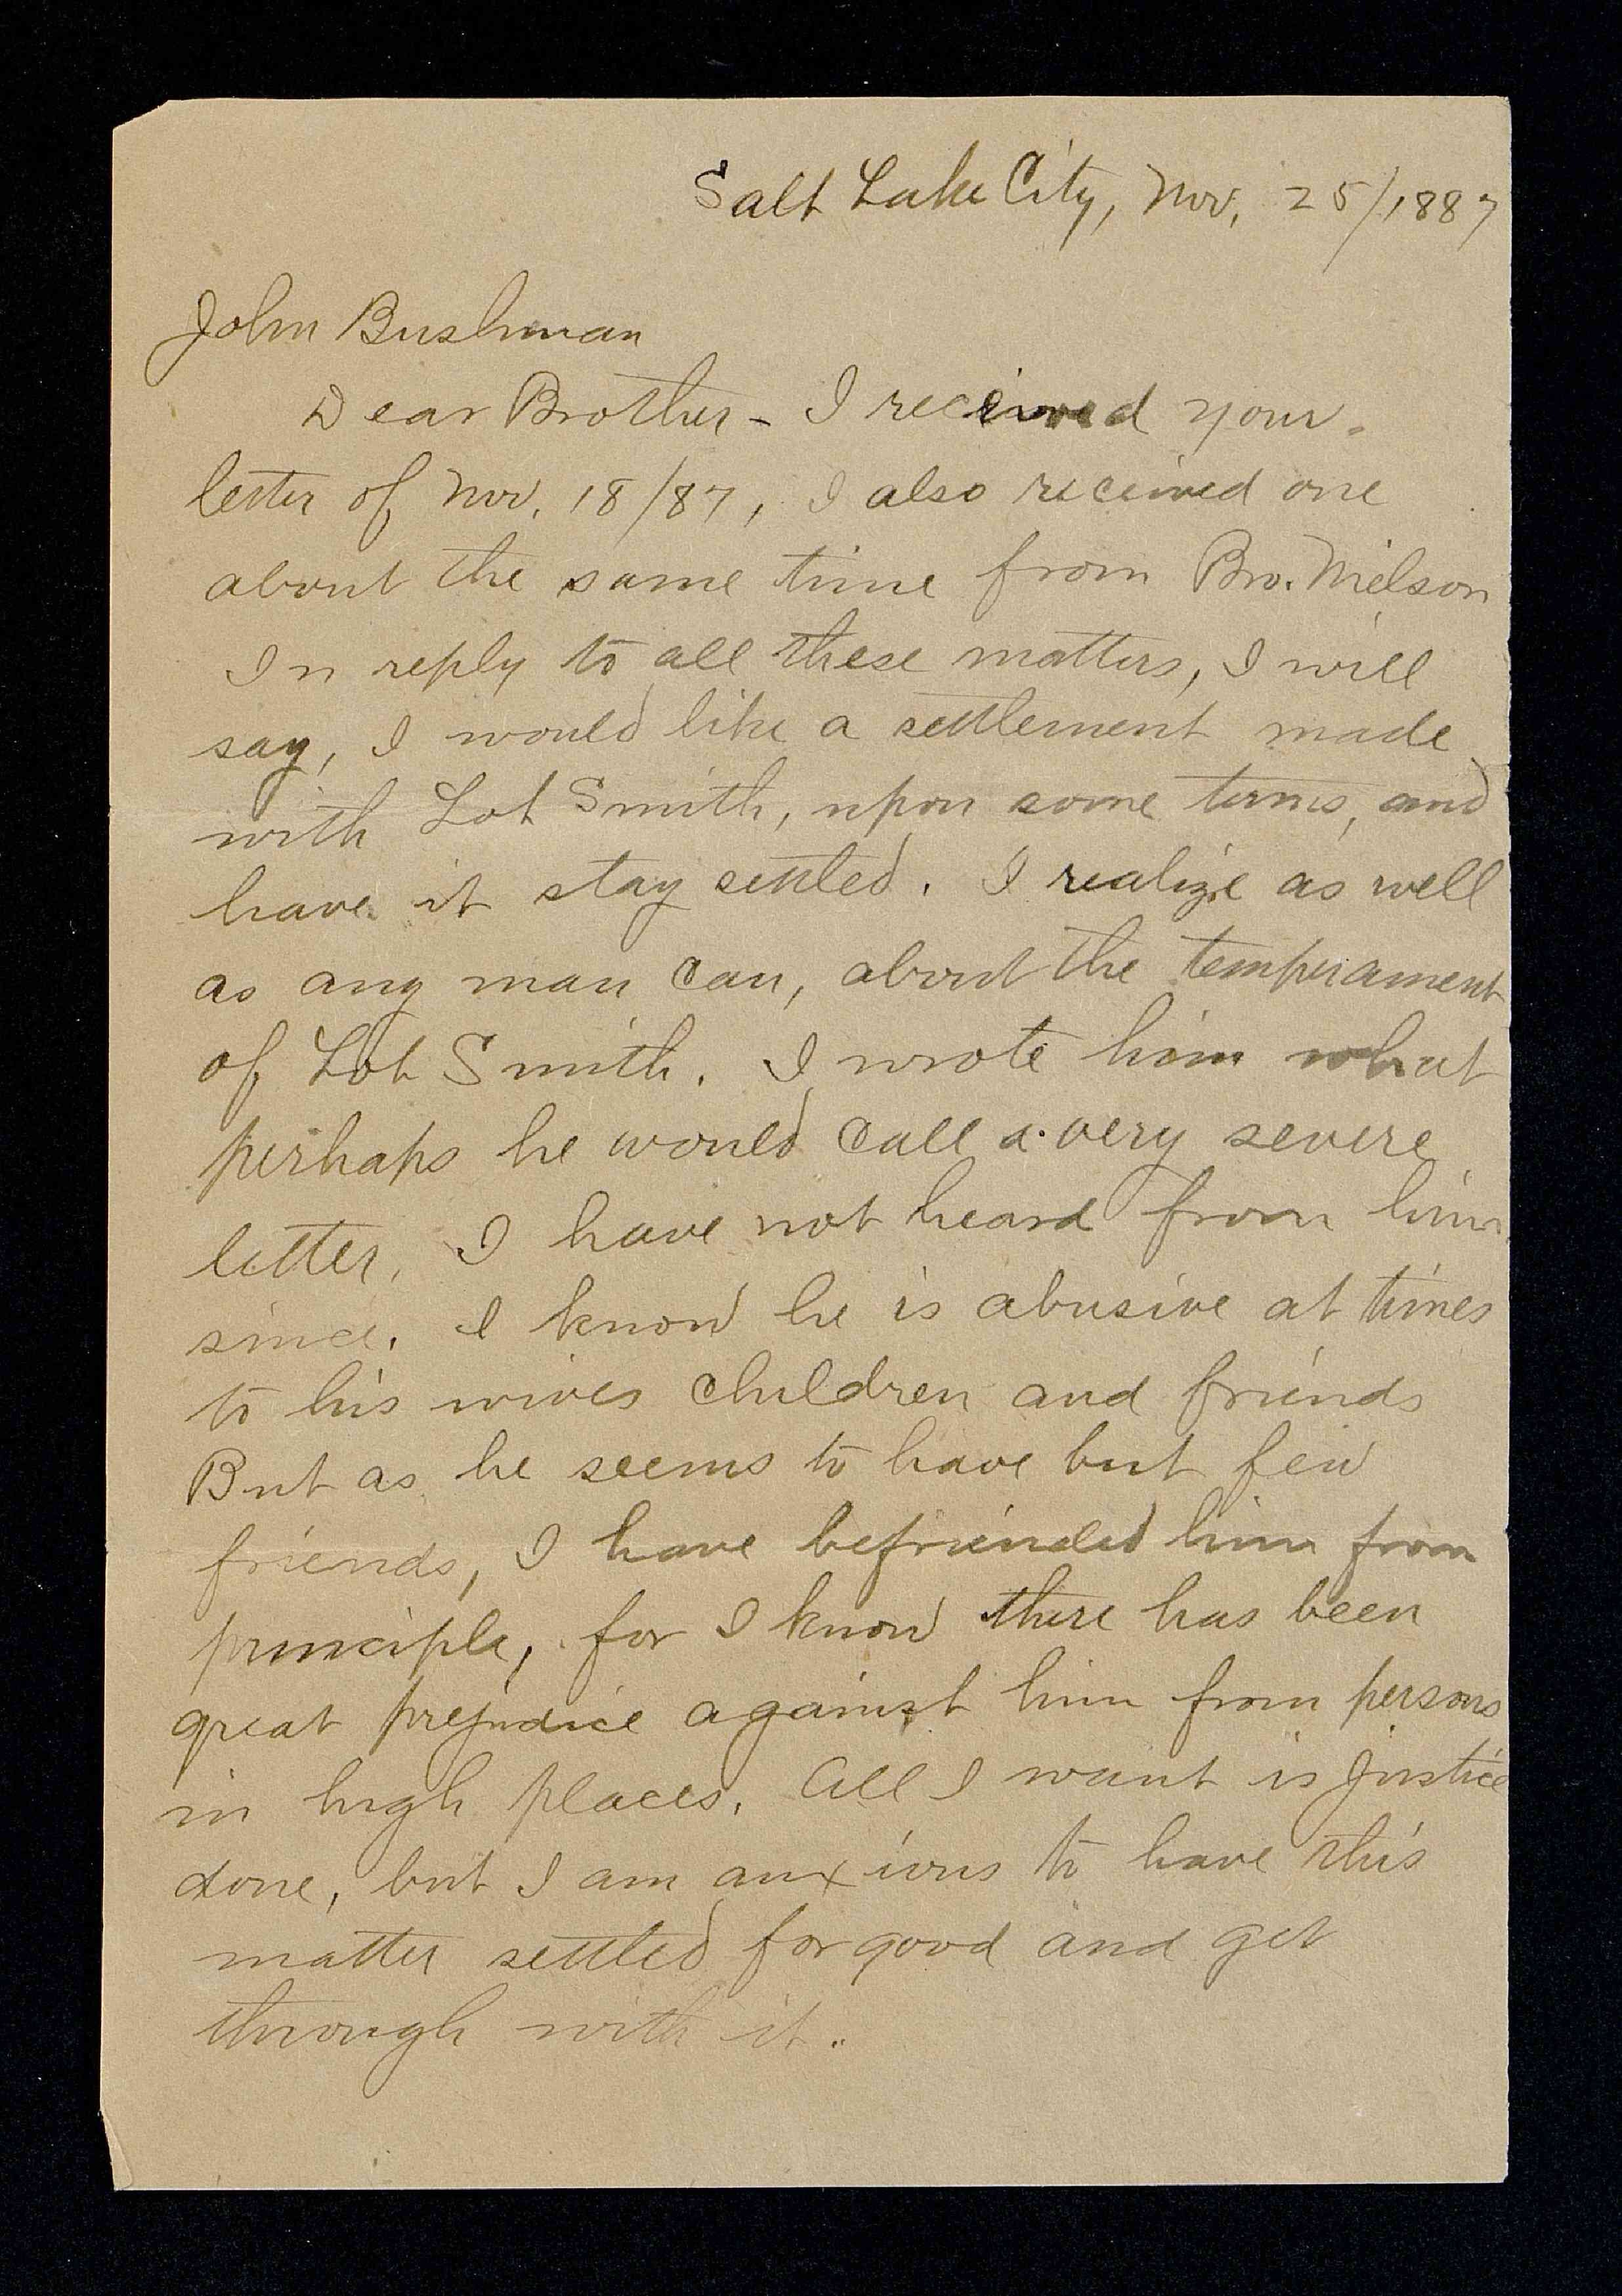 Salt Lake City, Nov, 25/1887
John Bushman
Dear Brother - I received your
letter of Nov. 18/87, I also received one
about the same time from Bro. Nielson
In reply to all these matters, I will
say, I would like a settlement made
with Lot Smith, upon some terms, and
have it stay settled. I realize as well
as any man can, about the temperament
of Lot Smith. I wrote him what
perhaps he would call a very severe
letter, I have not heard from him
since. I know he is abusive at times
to his wives children and friends
But as he seems to have but few
friends, I have befriended him from
principle, for I know there has been
great prejudice against him from persons
in high places. All I want is justice
done, but I am anxious to have this
matter settled for good and get
through with it.